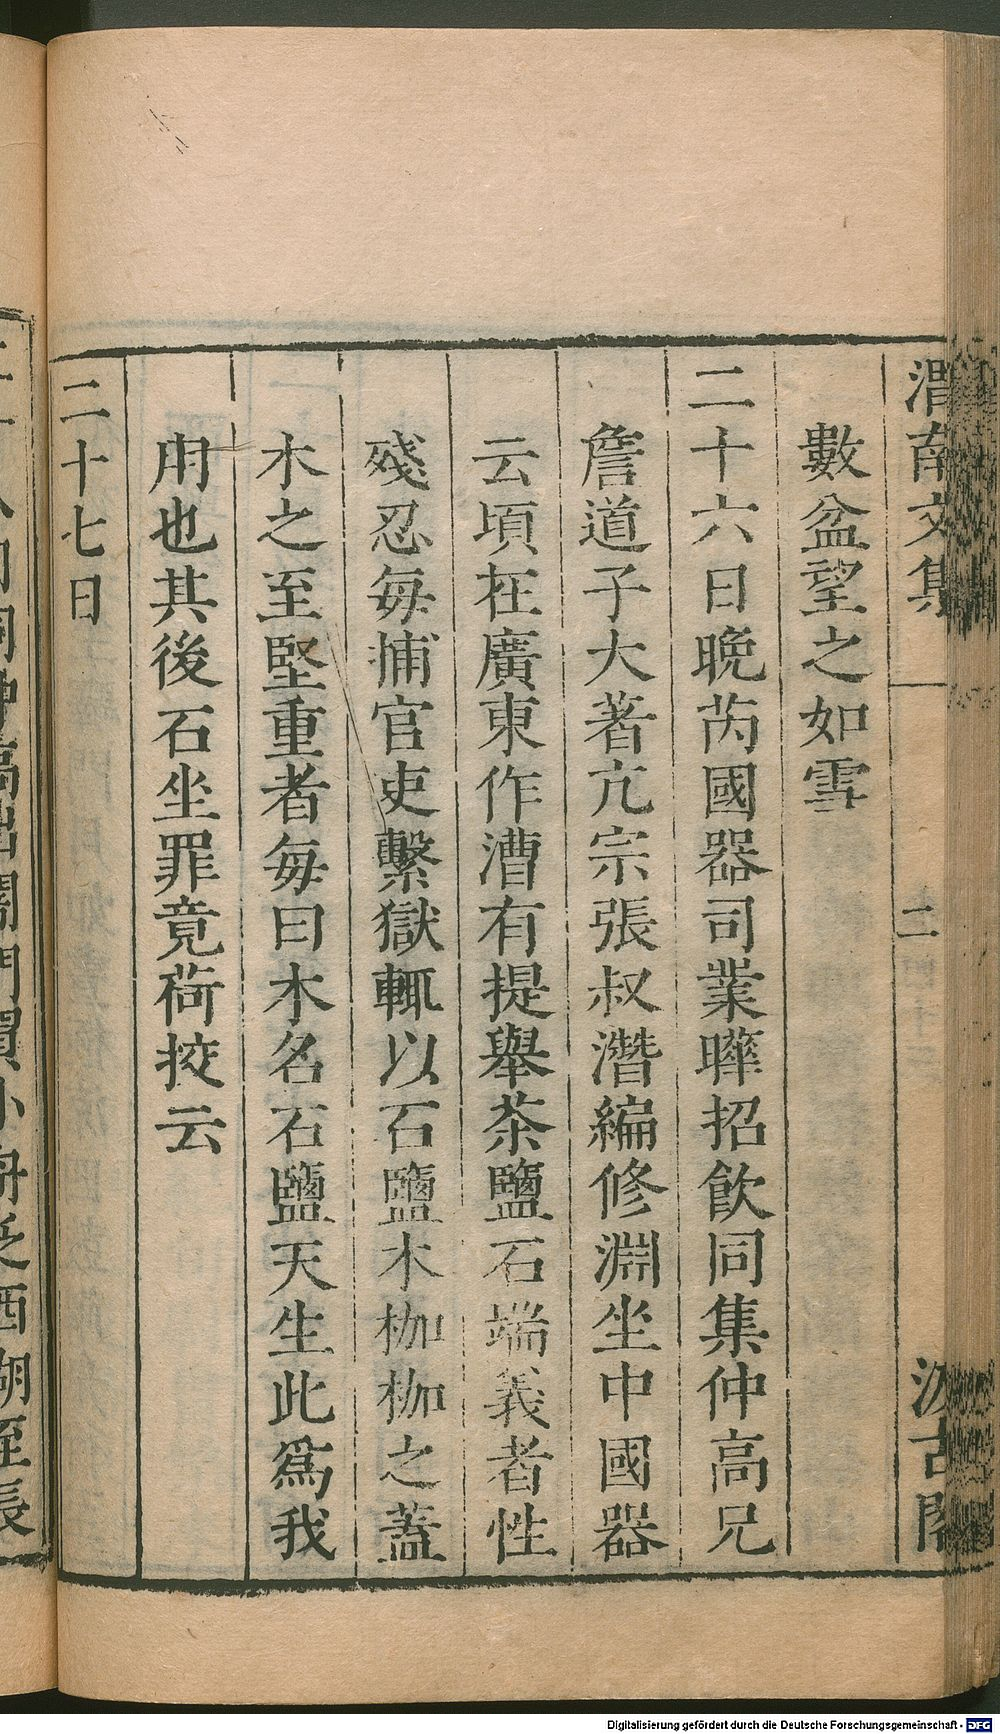 渭南文集
二
汲古閣
數盆望之如雪
二十六日晚芮國器司業曄招飲同集仲高兄
詹道子大著亢宗張叔潛編修淵坐中國器
云頃在廣東作漕有提舉茶鹽石端義者性
殘忍每捕官吏繫獄輒以石鹽木枷枷之蓋
木之至堅重者每曰木名石鹽天生此爲我
用也其後石坐罪竟荷挍云
二十七日
Digitalisierung gefördert durch die Deutsche Forschungsgemeinschaft - DFG